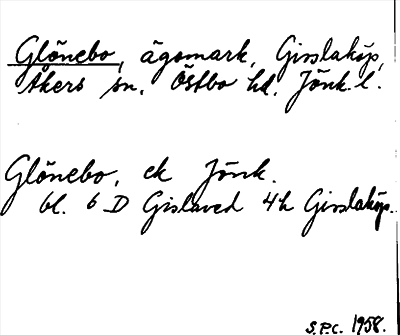 Glönebo, ägomark, Gisslaköp,
Åkers sn. Östbo hd. Jönk. l.
Glönebo, ek Jönk.
bl. 6 D Gislaved 4h Gisslaköp.
S.P.C. 1958.